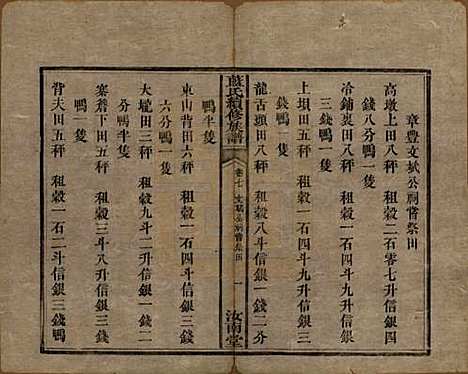 章豐文斌公祠嘗祭田
高墩上田八秤　租穀二石零七升信銀四
錢八分鴨一隻
冶鋪裏田八秤　租穀一石四斗九升信銀三
錢鴨一隻
上垻田八秤　租穀一石四斗九升信銀三
錢鴨一隻
龍古頭田八秤　租穀八斗信銀一錢二分
藍氏續修族譜
卷七
一
汝南堂
鴨半隻
東山背田六秤　租穀一石四斗信銀二錢
六分鴨一隻
大壠田三秤　租穀九斗二升信銀一錢二
分鴨一隻
寨詹下田五秤　租穀三斗八升信銀三錢
鴨一隻
背夫田五秤　租穀一石二斗信銀三錢鴨